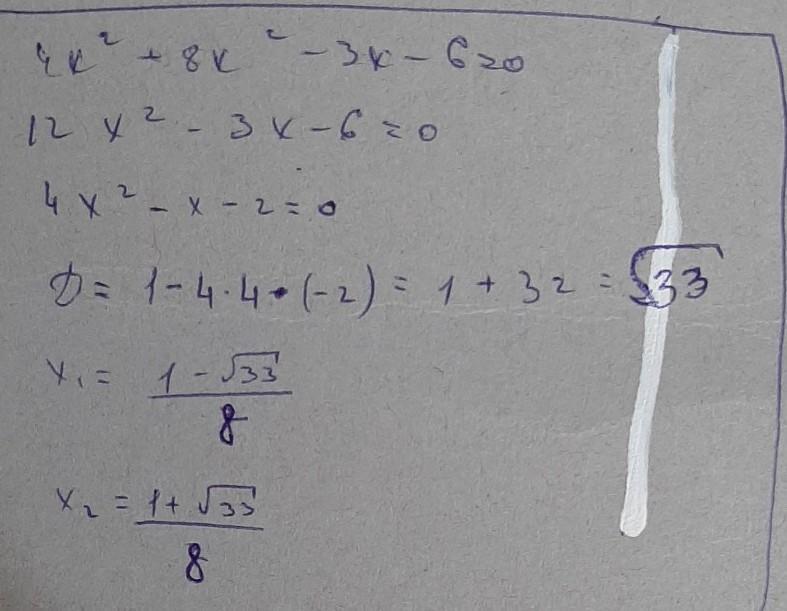 4x² + 8x² - 3x - 6 = 0
12 x² - 3x - 6 = 0
4x² - x - 2 = 0
D = 1 - 4 · 4 · (-2) = 1 + 32 = √33
x₁ = (1 - √33)/8
x₂ = (1 + √33)/8